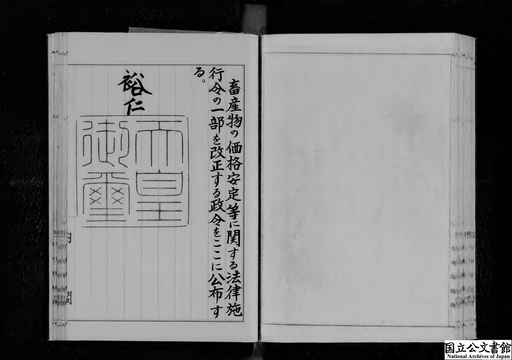 畜産物の価格安定等に関する法律施
行令の一部を改正する政令をここに公布す
る。
裕仁
天皇
御璽
国立公文書館
National Archives of Japan